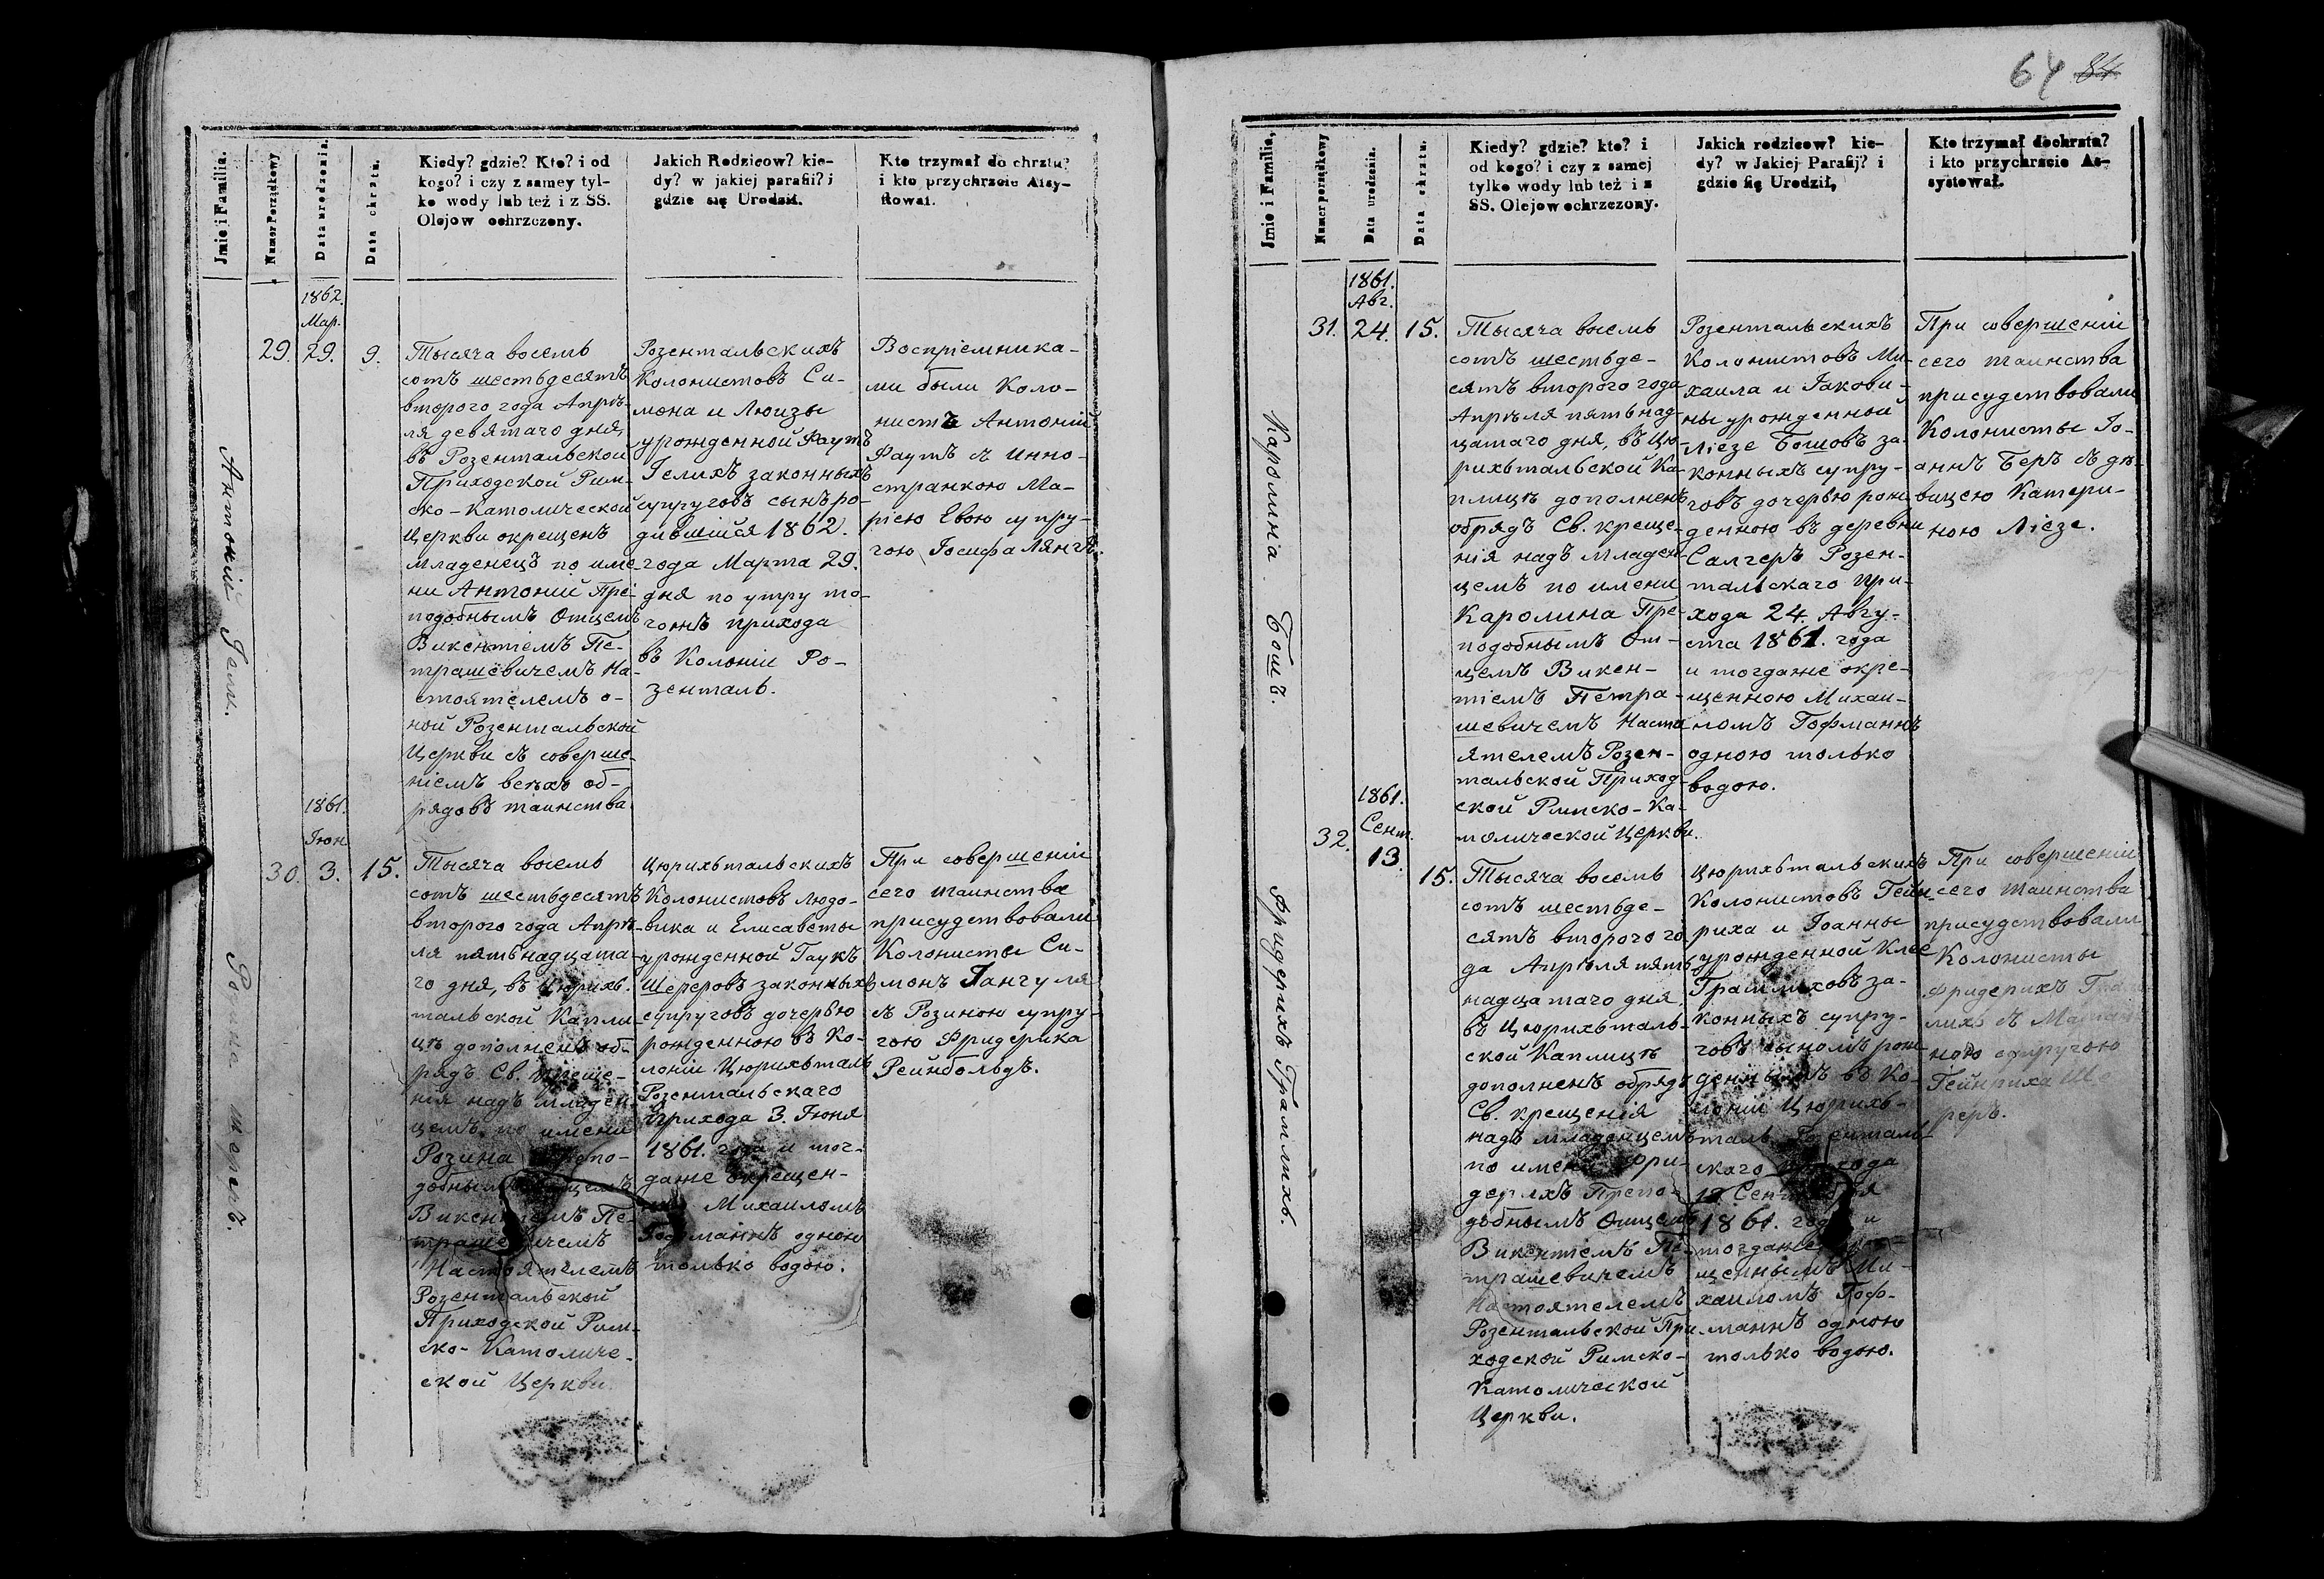 64 84
Jmie i Familia.
Numer Porządkowy
Data urodzenia.
Data chrztu.
Kiedy? gdzie? Kto? i od
kogo? i czy z samey tyl-
ko wody lub też i z SS.
Olejow ochrzczony.
Jakich Rodzicow? kie-
dy? w jakiej parafii? i
gdzie się Urodził.
Kto trzymał do chrztu?
i kto przychrzcie Assy-
stował.
Антоній Гелл.
29.
1862.
Мар.
29.
9.
Тысяча восемь
сотъ шестьдесятъ
втораго года Апрѣ-
ля девятаго дня,
въ Розентальской
Приходской Рим-
ско-Католической
Церкви окрещенъ
младенецъ по име-
ни Антоній Пре-
подобнымъ Отцемъ
Викентіемъ Пе-
трашевичемъ На-
стоятелемъ о-
ной Розентальской
Церкви съ соверше-
ніемъ всѣхъ об-
рядовъ таинства.
Розентальскихъ
Колонистовъ Си-
мона и Люизы
урожденной Фаутъ
Гелихъ законныхъ
супруговъ сынъ ро-
дившійся 1862.
года Марта 29.
дня по утру то-
гожъ прихода
въ Колоніи Ро-
зенталь.
Воспріемника-
ми были Коло-
нистъ Антоній
Фаутъ съ Инно-
странкою Ма-
ріею Евою супру-
гою Іосифа Лянгъ.
Розина Шереръ.
30.
1861.
Іюн.
3.
15.
Тысяча восемь
сотъ шестьдесятъ
втораго года Апрѣ-
ля пятьнадцата-
го дня, въ Цюрихь-
тальской Капли-
цѣ дополненъ об-
рядъ Св. креще-
нія надъ младен-
цемъ по имени
Розина Препо-
добнымъ Отцемъ
Викентіемъ Пе-
трашевичемъ
Настоятелемъ
Розентальской
Приходской Рим-
ско-Католиче-
ской Церкви.
Цюрихьтальскихъ
Колонистовъ Людо-
вика и Елисаветы
урожденной Гаукъ
Шереровъ законныхъ
супруговъ дочерью
рожденною въ Ко-
лоніи Цюрихьталь
Розентальскаго
Прихода 3. Іюня
1861. года и тог-
даже окрещен-
Михаиломъ
Гофманнъ одною
только водою.
При совершеніи
сего таинства
присудствовали
Колонисты Си-
монъ Гангуля
съ Розиною супру-
гою Фридерика
Рейнбольдъ.
Jmie i Familia,
Numer porządkowy
Data urodzenia.
Data chrztu.
Kiedy? gdzie? kto? i
od kogo? i czy z samej
tylko wody lub też i z
SS. Olejow ochrzczony.
Jakich rodzicow? kie-
dy? w Jakiej Parafij? i
gdzie się Urodził,
Kto trzymał dochrztu?
i kto przychrzcie As-
systował.
Каролина Бошъ.
31.
1861.
Авг.
24.
15.
Тысяча восемь
сотъ шестьде-
сятъ втораго года
Апрѣля пятьнад-
цатаго дня, въ Цю-
рихьтальской Ка-
плицѣ дополненъ
обрядъ Св. креще-
нія надъ младен-
цемъ по имени
Каролина Пре-
подобнымъ От-
цемъ Викен-
тіемъ Петра-
шевичемъ Насто-
ятелемъ Розен-
тальской Приход-
ской Римско-Ка-
толической Церкви.
Розентальскихъ
Колонистовъ Ми-
хаила и Іакоби-
ны урожденной
Ліезе Бошовъ за-
конныхъ супру-
говъ дочерью рож-
денною въ деревни
Салгеръ Розен-
тальскаго При-
хода 24. Авгу-
ста 1861. года
и тогдаже окре-
щенною Михаи-
ломъ Гофманнъ
одною только
водою.
При совершеніи
сего таинства
присудствовали
Колонисты Іо-
аннъ Беръ съ дѣ-
вицею Катери-
ною Ліезе.
Фридерихъ Грамлихъ.
32.
1861.
Сент.
13.
15.
Тысяча восемь
сотъ шестьде-
сятъ втораго го-
да Апрѣля пять-
надцатаго дня,
въ Цюрихьталь-
ской Каплицѣ
дополненъ обрядъ
Св. крещенія
надъ младенцемъ
по имени Фри-
дерихъ Препо-
добнымъ Отцемъ
Викентіемъ Пе-
трашевичемъ
Настоятелемъ
Розентальской При-
ходской Римско-
Католической
Церкви.
Цюрихьтальскихъ
Колонистовъ Гейн-
риха и Іоанны
урожденной Клее
Грамлиховъ за-
конныхъ супру-
говъ сыномъ рож-
деннымъ въ Ко-
лоніи Цюрихь-
таль Розенталь-
скаго Прихода
13 Сентября
1861. года и
тогдаже
щеннымъ Ми-
хаиломъ Гоф-
маннъ одною
только водою.
При совершеніи
сего таинства
присудствовали
Колонисты
Фридерихъ Грам-
лихъ съ
ною супругою
Гейнриха Ше-
реръ.